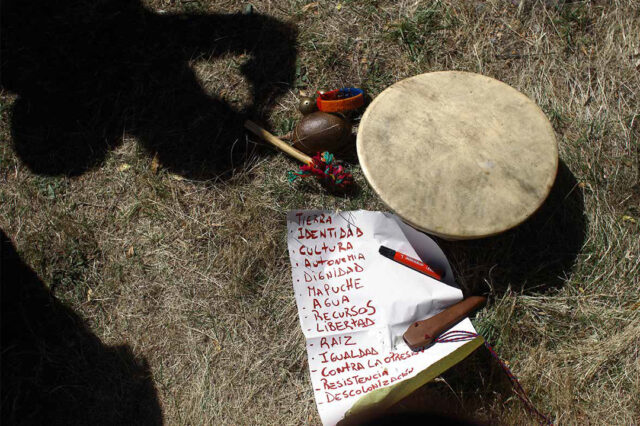 - TIERRA
- IDENTIDAD
- CULTURA
- AUTONOMIA
- DIGNIDAD
- MAPUCHE
- AGUA
- RECURSOS
- LIBERTAD
- RAIZ
- IGUALDAD
- CONTRA LA
- RESISTENCIA
- DESCOLONIZACIÓN